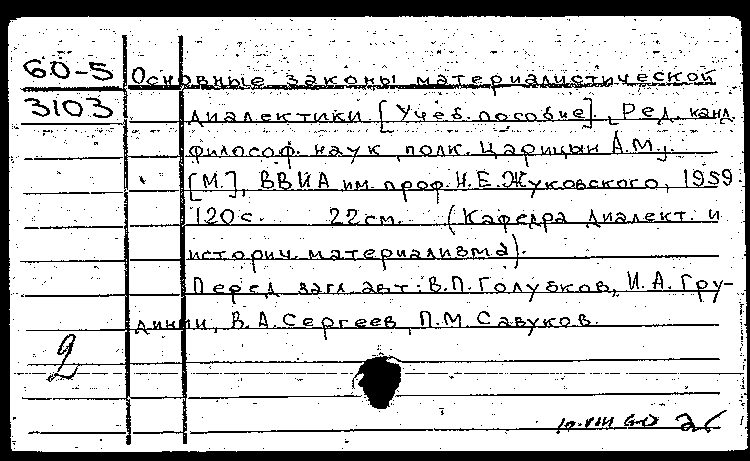 60-5 Основные законы материалистической
3103 диалектики [Учеб. пособие], Ред. канд.
философ. наук, полк. Царицын А.М.,
[М.], ВВИА им. проф. Н.Е.Жуковского, 1959.
120с. 22см. (Кафедра диалект. и
историч. материализма).
Перед загл. авт.: В.П.Голубков, И.А.Гру-
динин, В.А.Сергеев, П.М.Савуков.
2